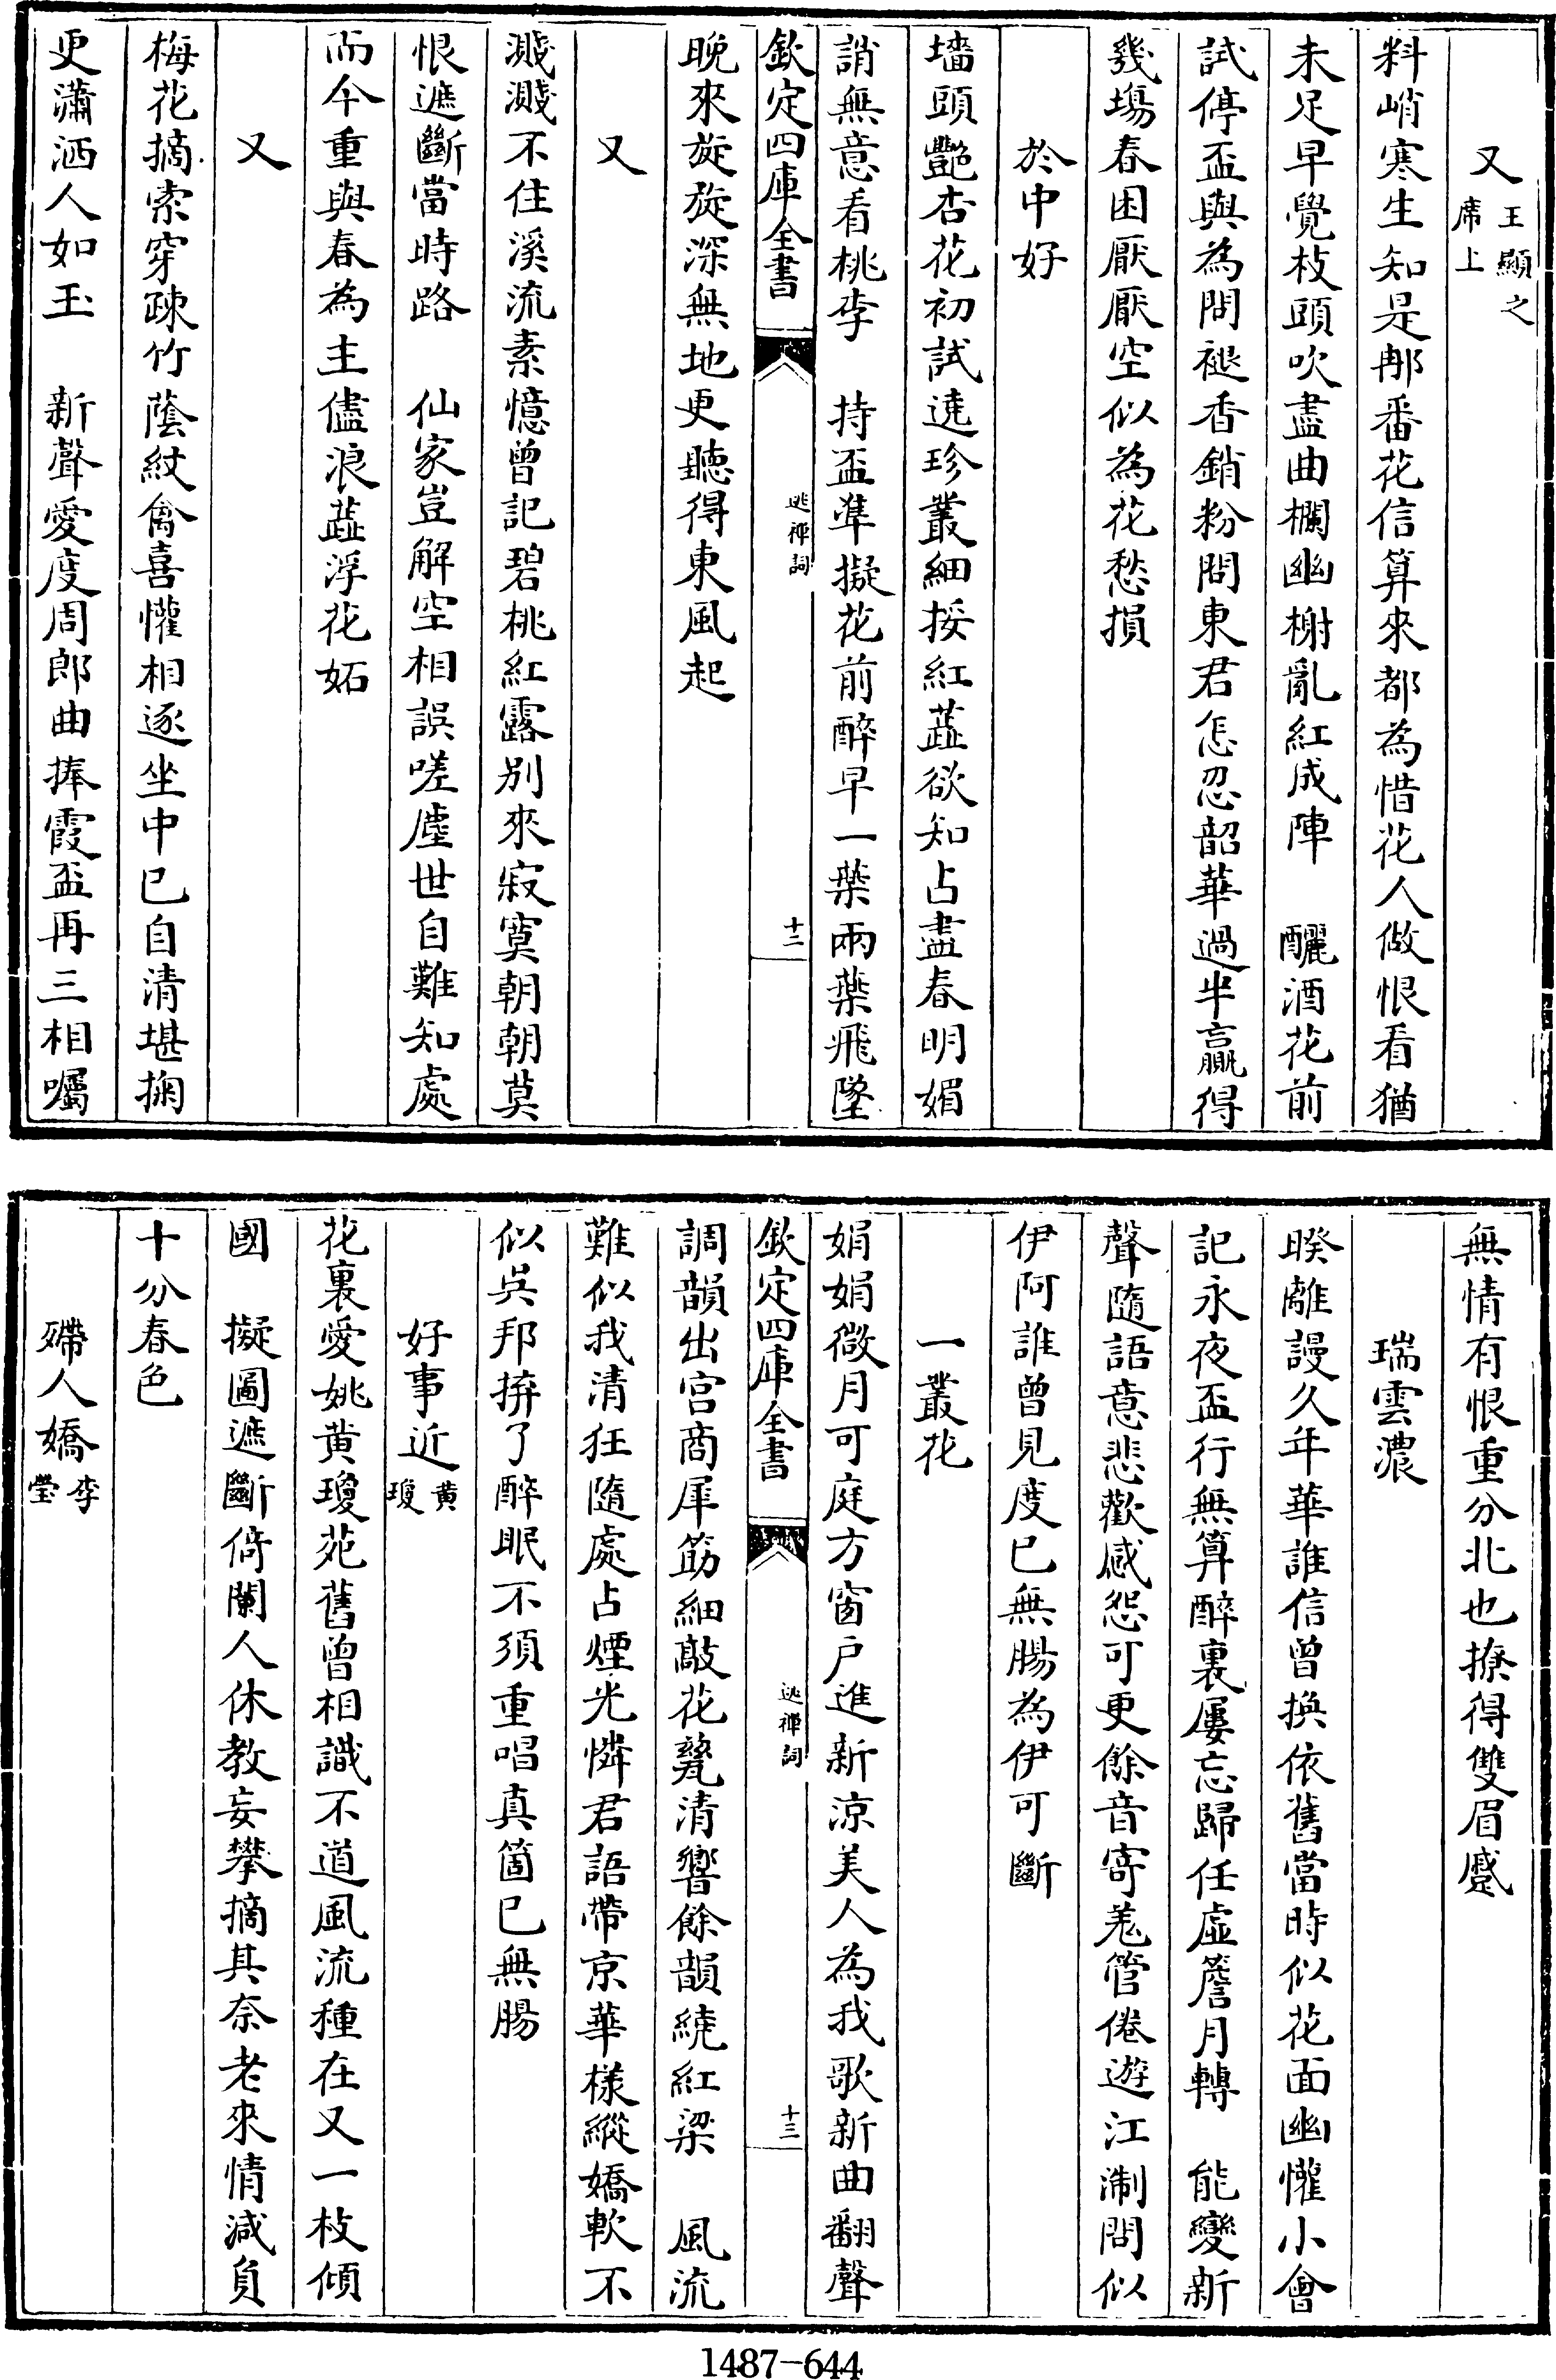 又王顯之席上
料峭寒生知是那番花信算來都為惜花人做恨看猶
未足早覺枝頭吹盡曲欄幽榭亂紅成陣　釃酒花前
試停盃與為問褪香銷粉問東君怎忍韶華過半贏得
幾場春困厭厭空似為花愁損
於中好
墻頭艷杏花初試遶珍叢細挼紅蘂欲知占盡春明媚
誚無意看桃李　持盃準擬花前醉早一葉兩葉飛墜
欽定四庫全書　逃禪詞　十二
晚來旋旋深無地更聽得東風起
又
濺濺不住溪流素憶曾記碧桃紅露別來寂寞朝朝莫
恨遮斷當時路　仙家豈解空相誤嗟塵世自難知處
而今重與春為主儘浪蘂浮花妬
又
梅花摘索穿疎竹蔭紋禽喜懽相逐坐中已自清堪掬
更瀟洒人如玉　新聲愛度周郎曲捧霞盃再三相囑
無情有恨重分北也撩得雙眉蹙
瑞雲濃
睽離謾久年華誰信曾換依舊當時似花面幽懽小會
記永夜盃行無算醉裏屢忘歸任虛簷月轉　能變新
聲隨語意悲歡感怨可更餘音寄羌管倦遊江淛問似
伊阿誰曾見度已無腸為伊可斷
一叢花
娟娟微月可庭方窗戶進新涼美人為我歌新曲翻聲
欽定四庫全書　逃禪詞　十三
調韻出宮商犀筯細敲花甆清響餘韻繞紅梁　風流
難似我清狂隨處占煙光憐君語帶京華樣縱嬌軟不
似吳邦拚了醉眠不須重唱真箇已無腸
好事近黃瓊
花裏愛姚黃瓊苑舊曾相識不道風流種在又一枝傾
國　擬圖遮斷倚闌人休教妄攀摘其奈老來情減負
十分春色
殢人嬌李瑩
1487-644